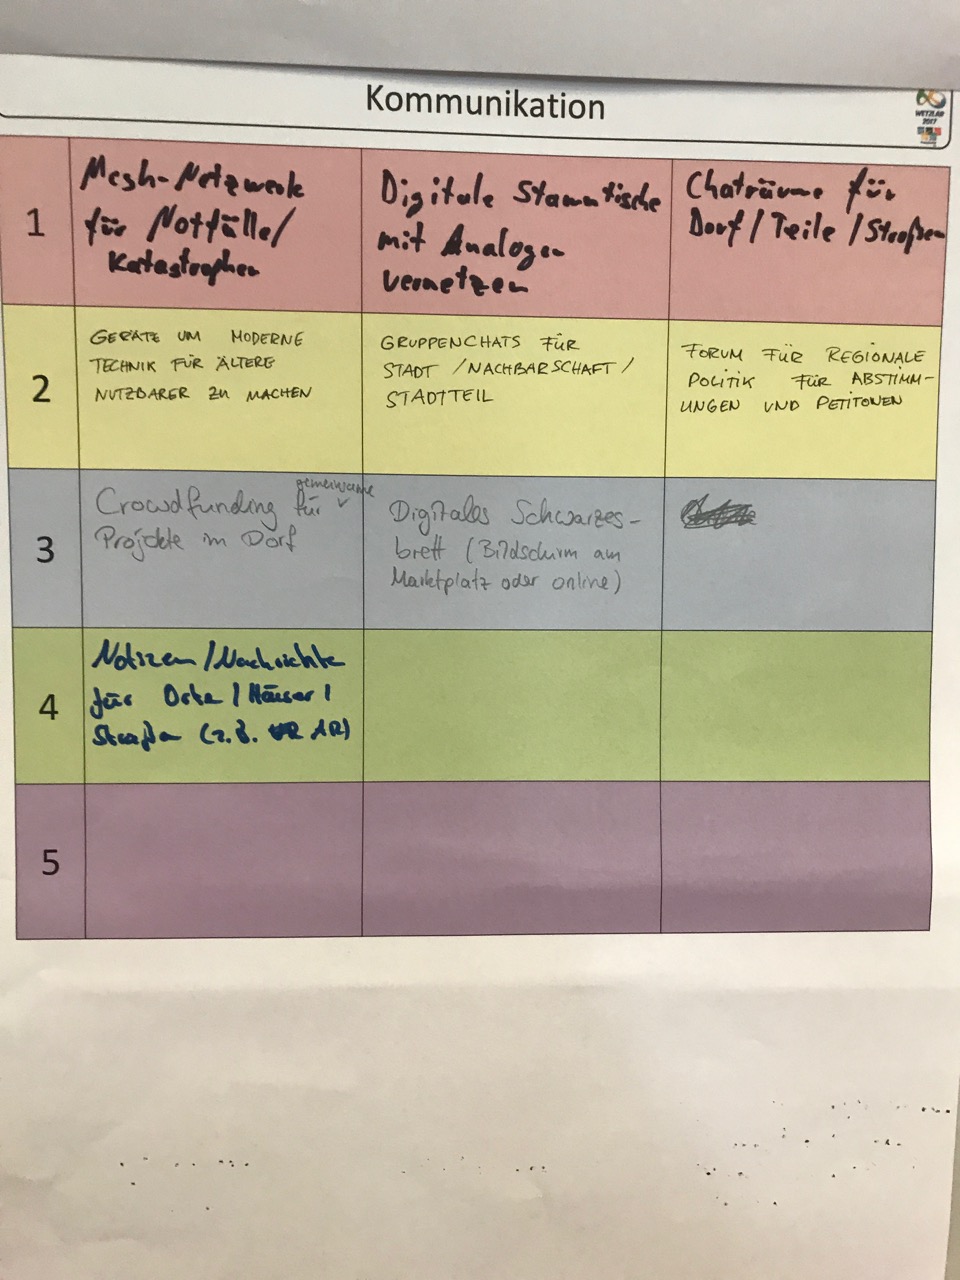 Kommunikation
WETZLAR
2017
1
Mesh-Netzwerk
für Notfälle/
Katastrophen
Digitale Stammtische
mit Analogen
vernetzen
Chaträume für
Dorf/Teile/Straßen
2
GERÄTE UM MODERNE
TECHNIK FÜR ÄLTERE
NUTZBARER ZU MACHEN
GRUPPENCHATS FÜR
STADT /NACHBARSCHAFT/
STADTTEIL
FORUM FÜR REGIONALE
POLITIK FÜR ABSTIMM-
UNGEN UND PETITONEN
3
gemeinsame
Crowdfunding für
Projekte im Dorf
Digitales Schwarzes-
brett (Bildschirm am
Marktplatz oder online)
4
Notizen/Nachrichte
für Orte/Häuser/
Straßen (z.B. VR AR)
5